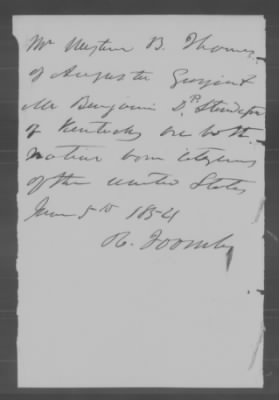 Mr B. Thomas
of Augusta
Mr Benjamin D.
of Kentucky are both
native born citizens
of the United States
June 5th 1854
R. Toombs